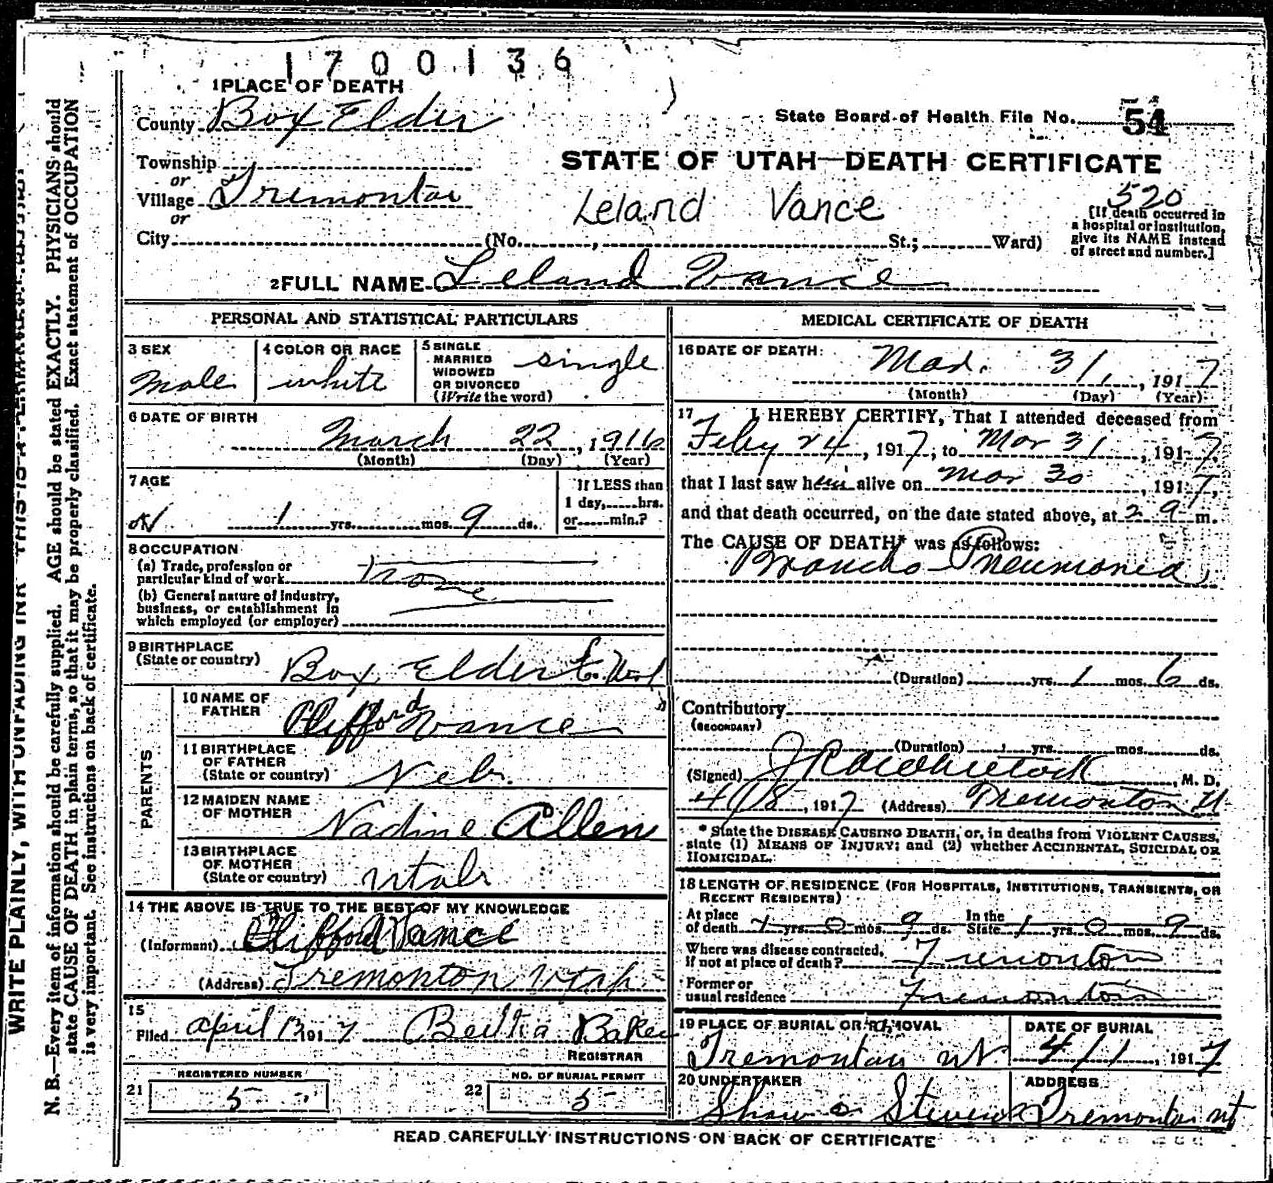 1700136
1 PLACE OF DEATH
County Box Elder
State Board of Health File No. 54
Township
or
Village Tremonton
or
STATE OF UTAH—DEATH CERTIFICATE
Leland Vance
520
[If death occurred in
a hospital or institution,
give its NAME instead
of street and number.]
City (No. , St.; Ward)
2 FULL NAME Leland Vance
PERSONAL AND STATISTICAL PARTICULARS
3 SEX
Male
4 COLOR OR RACE
white
5 SINGLE
MARRIED
WIDOWED
OR DIVORCED
(Write the word)
single
6 DATE OF BIRTH
March 22, 1916
(Month) (Day) (Year)
7 AGE
1 yrs. mos. 9 ds.
If LESS than
1 day, hrs.
or min.?
8 OCCUPATION
(a) Trade, profession or
particular kind of work None
(b) General nature of industry,
business, or establishment in
which employed (or employer)
9 BIRTHPLACE
(State or country) Box Elder
PARENTS
10 NAME OF
FATHER Clifford Vance
11 BIRTHPLACE
OF FATHER
(State or country) Neb.
12 MAIDEN NAME
OF MOTHER Nadine Allen
13 BIRTHPLACE
OF MOTHER
(State or country) Utah
14 THE ABOVE IS TRUE TO THE BEST OF MY KNOWLEDGE
(Informant) Clifford Vance
(Address) Tremonton Utah
15
Filed April 13 1917 Bertha Baker
REGISTRAR
21 REGISTERED NUMBER
5
22 NO. OF BURIAL PERMIT
5
MEDICAL CERTIFICATE OF DEATH
16 DATE OF DEATH:
Mar. 31, 1917
(Month) (Day) (Year)
17 I HEREBY CERTIFY, That I attended deceased from
Feby 24, 1917, to Mar 31, 1917,
that I last saw him alive on Mar 30, 1917,
and that death occurred, on the date stated above, at 2 9 m.
The CAUSE OF DEATH* was as follows:
Broncho Pneumonia
(Duration) yrs. 1 mos. 6 ds.
Contributory
(SECONDARY)
(Duration) yrs. mos. ds.
(Signed) M. D.
4/18, 1917 (Address) Tremonton U
* State the DISEASE CAUSING DEATH, or, in deaths from VIOLENT CAUSES,
state (1) MEANS OF INJURY; and (2) whether ACCIDENTAL, SUICIDAL OR
HOMICIDAL.
18 LENGTH OF RESIDENCE (FOR HOSPITALS, INSTITUTIONS, TRANSIENTS, OR
RECENT RESIDENTS)
At place
of death 1 yrs. 0 mos. 9 ds. In the
State 1 yrs. 0 mos. 9 ds.
Where was disease contracted,
if not at place of death? Tremonton
Former or
usual residence Tremonton
19 PLACE OF BURIAL OR REMOVAL
Tremonton Ut
DATE OF BURIAL
4/1, 1917
20 UNDERTAKER
Shaw & Stevens
ADDRESS
Tremonton Ut
READ CAREFULLY INSTRUCTIONS ON BACK OF CERTIFICATE
N. B.—Every item of information should be carefully supplied. AGE should be stated EXACTLY. PHYSICIANS should
state CAUSE OF DEATH in plain terms, so that it may be properly classified. Exact statement of OCCUPATION
is very important. See instructions on back of certificate.
WRITE PLAINLY, WITH UNFADING INK